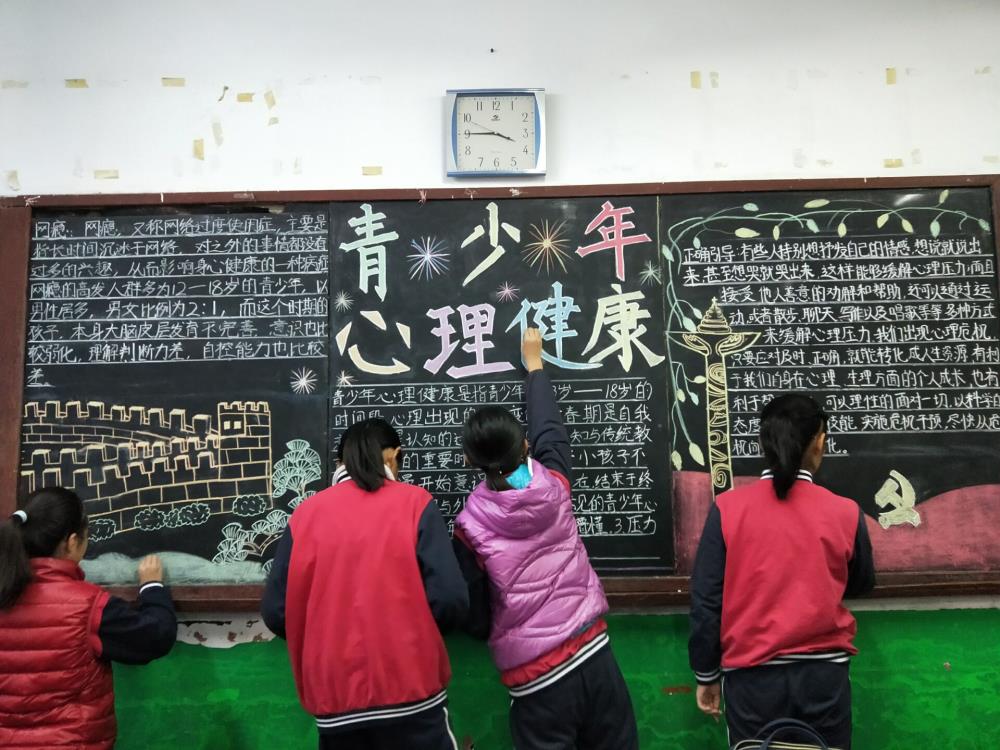 12
1
2
3
4
5
6
7
8
9
10
11
网瘾:网瘾,又称网络过度使用症,主要是
指长时间沉冰于网络,对之外的事情都没有
过多的兴趣,从而影响身心健康的一种病症
网瘾的高发人群多为12—18岁的青少年,以
男性居多,男女比例为2:1,而这个时期的
孩子,本身大脑皮层发育不完善,意识也比
较弱化,理解判断力差,自控能力也比较
差。
青少年
心理健康
青少年心理健康是指青少年 岁——18岁的
时间段,心理出现的 春期是自我
认知的 知与传统教
的重要时 小孩子不
开始意识 在结束于终
现的青少年心
懵懂.3.压力
正确引导:有些人特别想抒发自己的情感,想说就说出
来,甚至想哭就哭出来,这样能够缓解心理压力,而且
接受他人善意的劝解和帮助,还可以通过运
动,或者散步,聊天,写作以及唱歌等等多种方式
来缓解心理压力,我们出现心理危机,
只要应对及时,正确,就能转化成人生资源,有利
于我们自身在心理、生理方面的个人成长,也有
利于 可以理性的面对一切,以科学的
态度 技能,实施危机干预,尽快从危
机向 化。